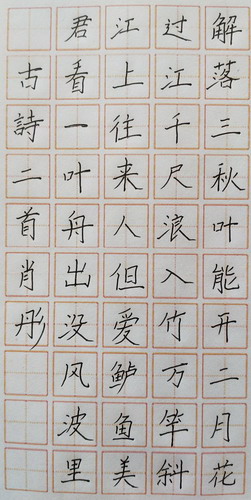 解落三秋叶能开二月花
过江千尺浪入竹万竿斜
江上往来人但爱鲈鱼美
君看一叶舟出没风波里
古詩二首肖彤